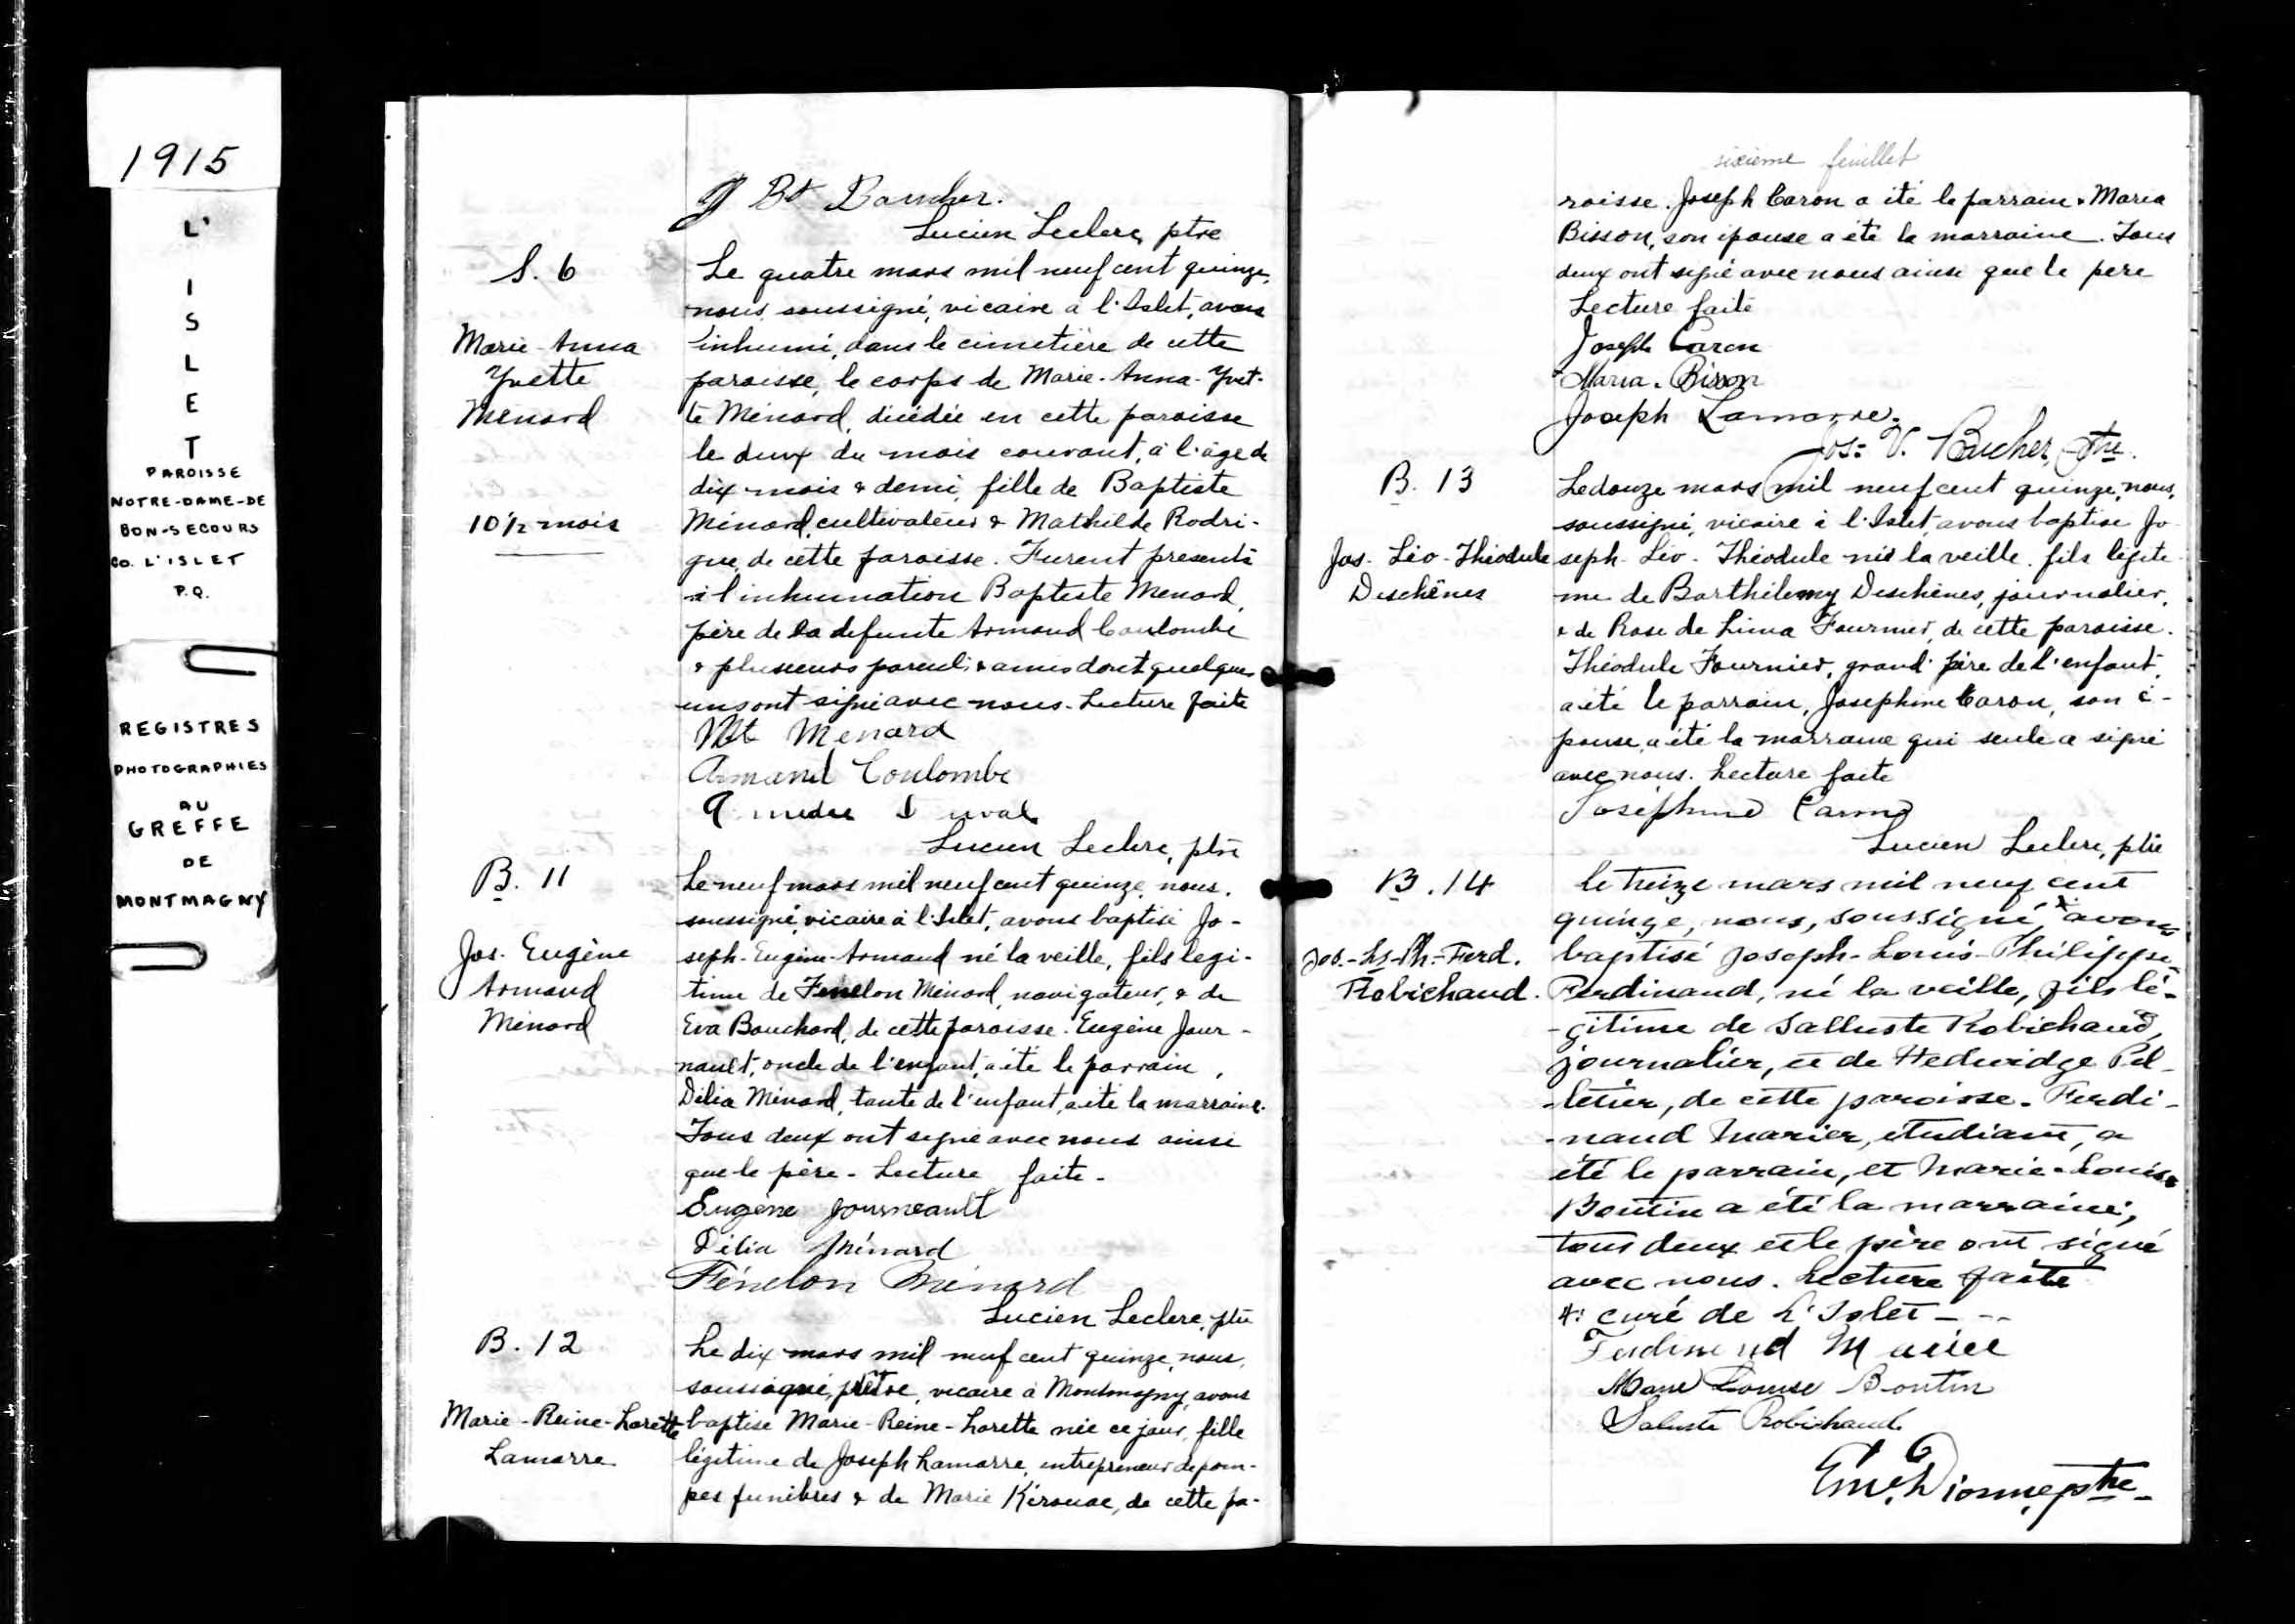 1915
L'
I
S
L
E
T
PAROISSE
NOTRE-DAME-DE
BON-SECOURS
CO. L'ISLET
P.Q.
REGISTRES
PHOTOGRAPHIES
AU
GREFFE
DE
MONTMAGNY
J Bt
Lucien Leclerc, ptre
S. 6
Marie-Anna
Yvette
Ménard
10 1/2 mois
Le quatre mars mil neuf cent quinze,
nous, soussigné, vicaire à l'Islet, avons
inhumé, dans le cimetière de cette
paroisse, le corps de Marie-Anna-Yvet-
te Ménard, décédée en cette paroisse
le deux du mois courant, à l'âge de
dix mois & demi, fille de Baptiste
Ménard, cultivateur & Mathilde Rodri-
gue, de cette paroisse. Furent présents
à l'inhumation Baptiste Menard,
père de la defunte Armand Coulombe
& plusieurs parents & amis dont quelques
uns ont signé avec nous. Lecture faite
Menard
Armand Coulombe
Lucien Leclerc, ptre
B. 11
Jos. Eugène
Armand
Ménard
Le neuf mars mil neuf cent quinze, nous,
soussigné, vicaire à l'Islet, avons baptisé Jo-
seph-Eugène-Armand né la veille, fils légi-
time de Fenelon Ménard, navigateur, & de
Eva Bouchard, de cette paroisse. Eugène Jour-
nault, oncle de l'enfant, a été le parrain,
Délia Ménard, tante de l'enfant, a été la marraine.
Tous deux ont signé avec nous ainsi
que le père - Lecture faite -
Eugène Journeault
Délia Ménard
Fénelon Ménard
Lucien Leclerc, ptre
B. 12
Marie-Reine-Lorette
Lamarre
Le dix mars mil neuf cent quinze, nous,
soussigné, prêtre, vicaire à Montmagny, avons
baptisé Marie-Reine-Lorette née ce jour, fille
légitime de Joseph Lamarre, entrepreneur de pom-
pes funèbres & de Marie Kérouac, de cette pa-
sixieme feuillet
roisse. Joseph Caron a été le parrain & Maria
Bisson, son épouse a été la marraine. Tous
deux ont signé avec nous ainsi que le père
Lecture faite
Joseph Caron
Maria. Bisson
Joseph Lamarre.
Jos. V. Ptre.
B. 13
Jos. Léo-Théodule
Deschênes
Le douze mars mil neuf cent quinze, nous,
soussigné, vicaire à l'Islet, avons baptisé Jo-
seph-Léo-Théodule né la veille, fils légiti-
me de Barthélemy Deschènes, journalier,
& de Rose de Lima Fournier, de cette paroisse.
Théodule Fournier, grand père de l'enfant,
a été le parrain, Josephine Caron, son é-
pouse, a été la marraine qui seule a signé
avec nous. Lecture faite
Joséphine Caron
Lucien Leclerc, ptre
B. 14
Jos.-Ls-Ph.-Ferd.
Robichaud.
le treize mars mil neuf cent
quinze, nous, soussigné, x avons
baptisé Joseph-Louis-Philippe-
Ferdinand, né la veille, fils lé-
-gitime de Salluste Robichaud,
journalier, et de Hedwidge Pel-
-letier, de cette paroisse. Ferdi-
-nand Marier, étudiant, a
été le parrain, et Marie-Louise
Boutin a été la marraine,
tous deux et le père ont signé
avec nous. Lecture faite
x: curé de L'Islet - - -
Ferdinand Marier
Marie Louise Boutin
Saluste Robichaud
Dionne, ptre